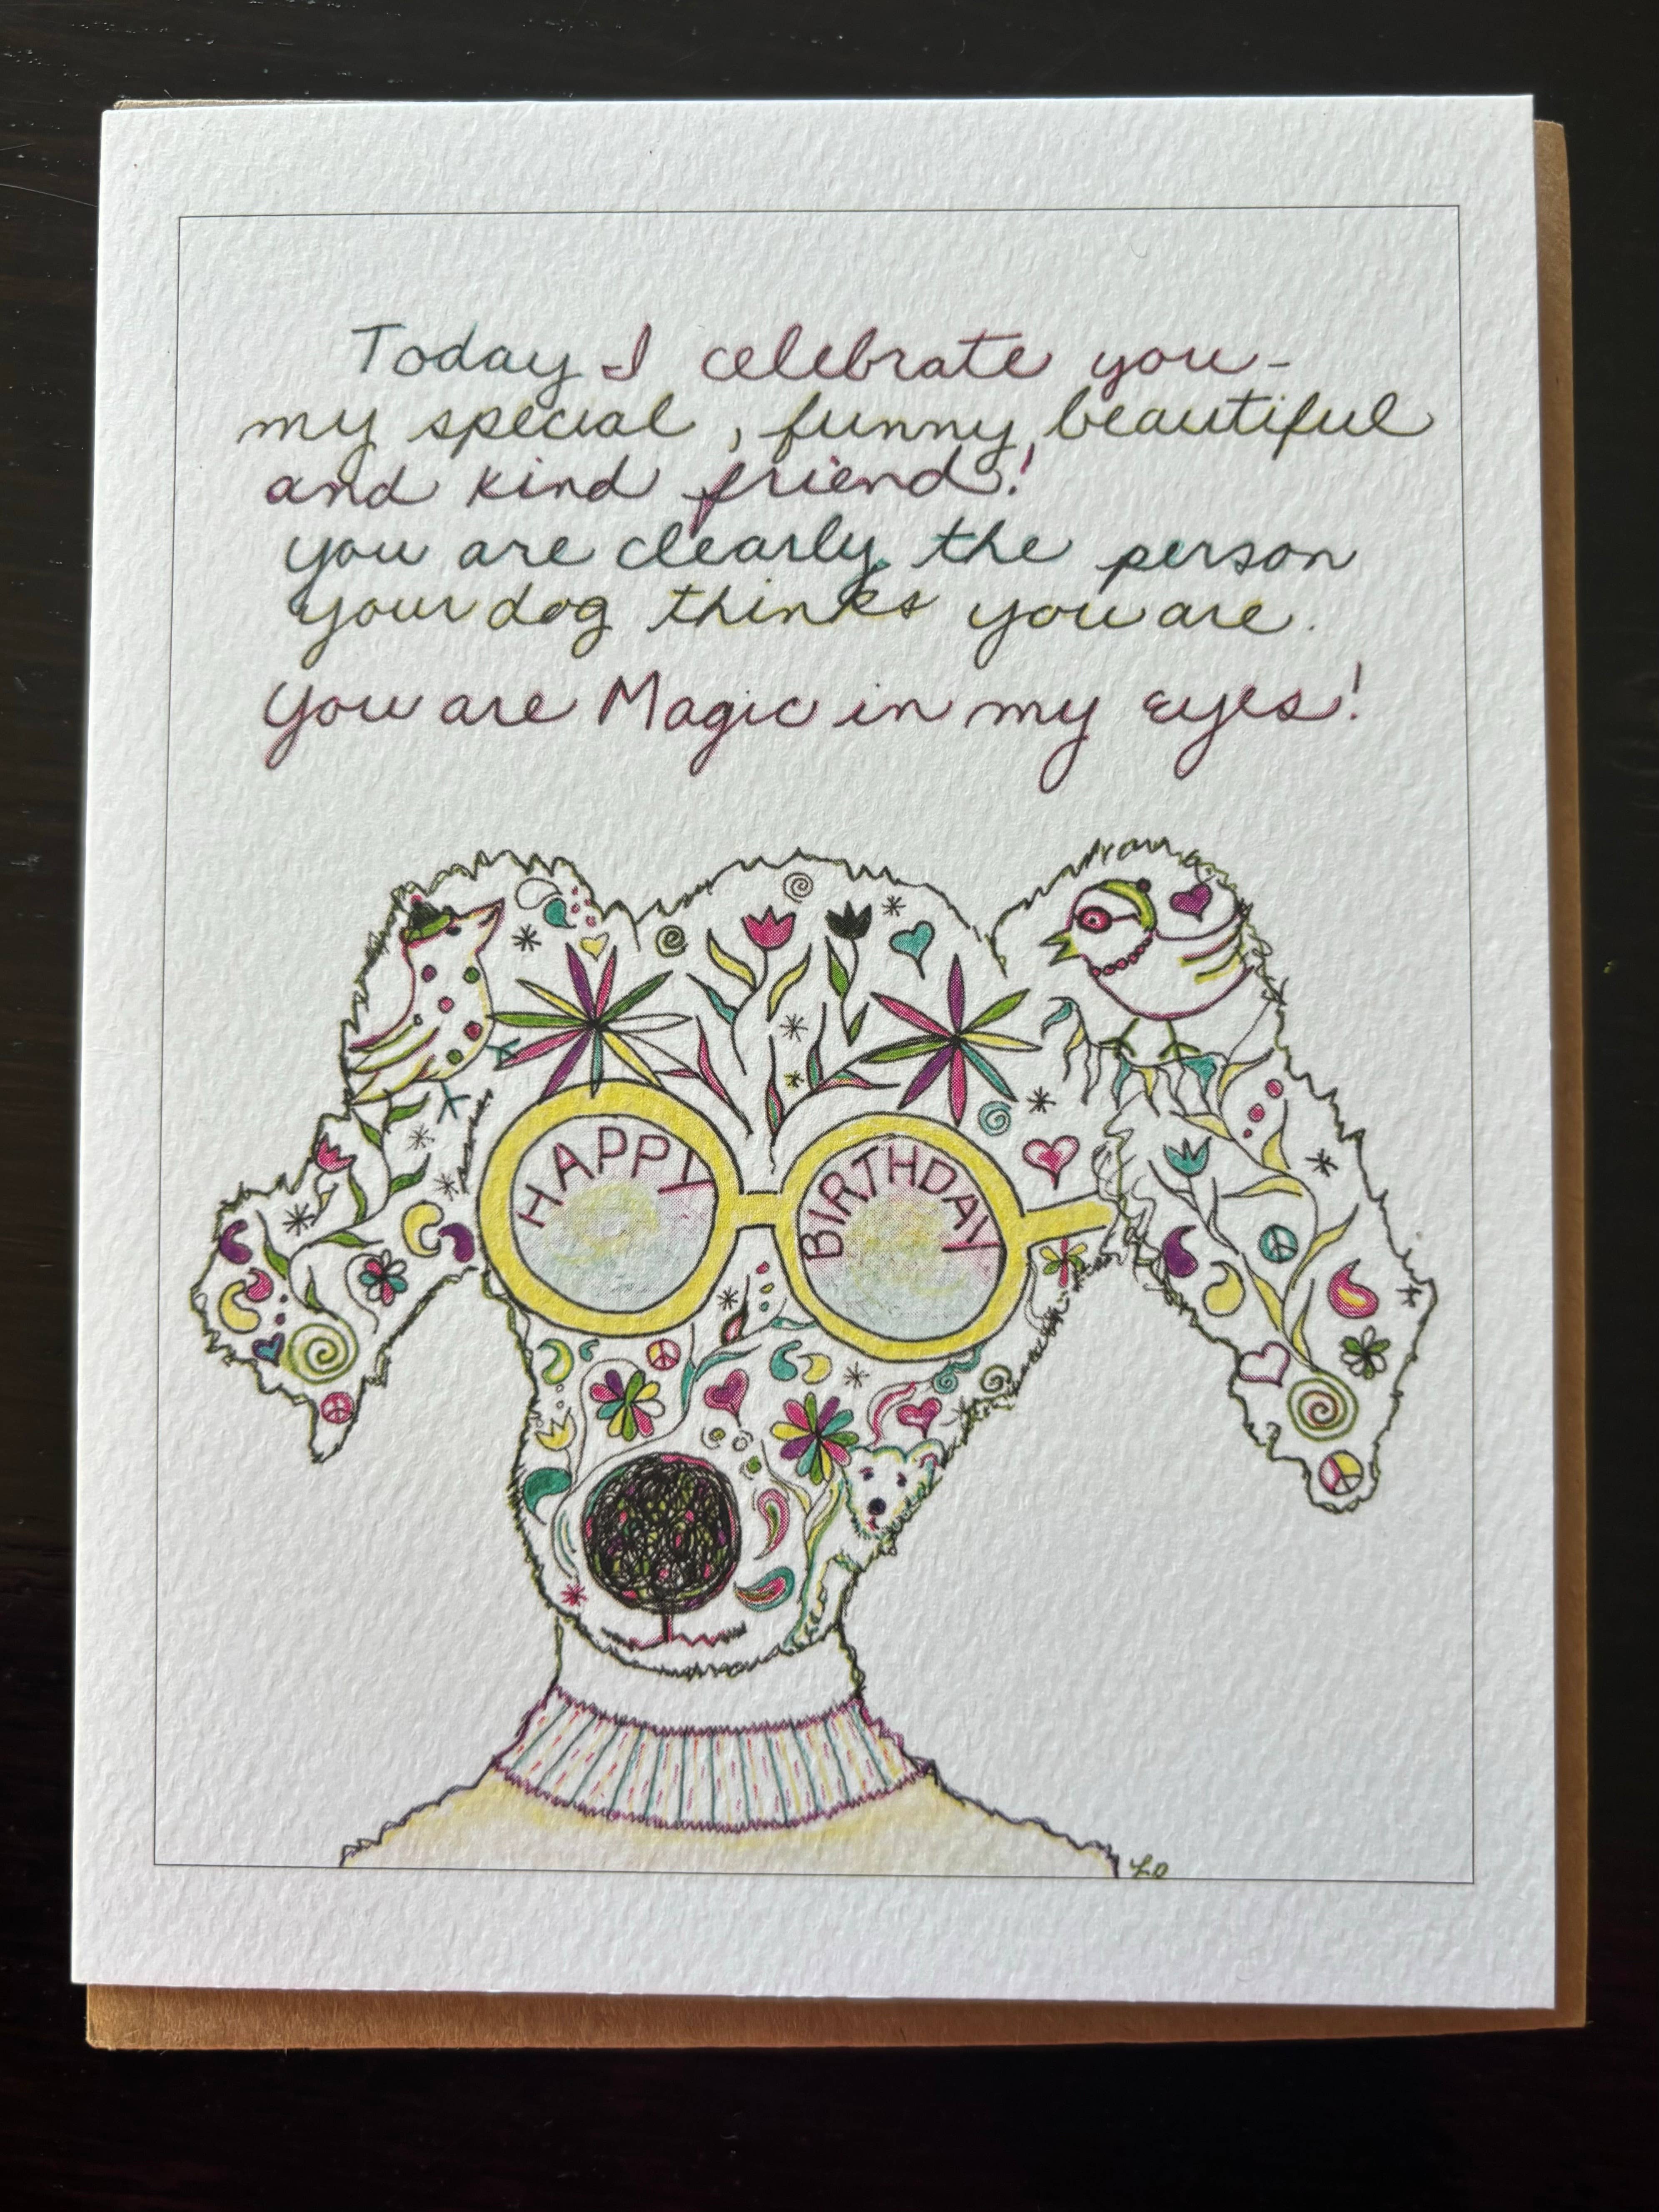 Today I celebrate you-
my special, funny, beautiful
and kind friend!
you are clearly the person
your dog thinks you are.
You are Magic in my eyes!
HAPPY
BIRTHDAY